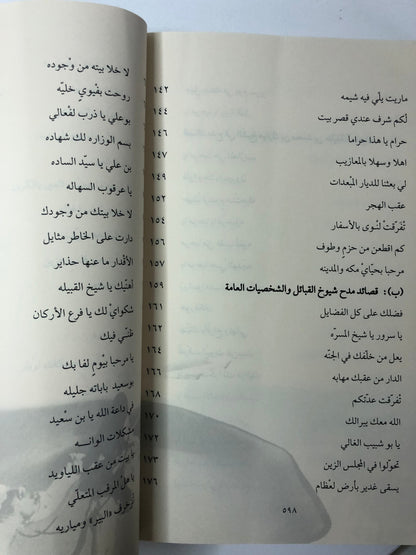 ماريت يلّي فيه شيمه ١٤٢
لكم شرف عندي قصر بيت ١٤٤
حرام يا هذا حراما ١٤٦
اهلا وسهلا بالمعازيب ١٤٧
لي بعثنا للديار المُبعدات ١٤٩
عقب الهجر ١٥٢
تُفرّقت لنوى بالأسفار ١٥٤
كم اقطعن من حزمٍ وطوف ١٥٦
مرحبا بحيّايْ مكه والمدينه ١٥٧
(ب): قصائد مدح شيوخ القبائل والشخصيات العامة ١٥٩
فضلك على كل الفضايل ١٦١
يا سرور يا شيخ المسرّه ١٦٤
يعل من خلّفك في الجنّه ١٦٦
الدار من عقبك مهابه ١٦٨
تُفرّقت عدّتكم ١٧٠
الله معك ييرالك ١٧٢
يا بو شبيب الغالي ١٧٣
تحولوا في المجلس الزين ١٧٦
يسقى غدير بأرض لعظام
٥٩٨
لا خلا بيته من وْجوده
روحت بفْيوي خليّه
بوعلي يا ذرب لفْعالي
بسم الوزاره لك شهاده
بن علي يا سيّد الساده
يا عرقوب السهاله
لا خلا بيتك من وْجودك
دارت على الخاطر مثايل
الأقدار ما عنها حذاير
أهنيك يا شيخ القبيله
شكوايْ لك يا فرع الأركان
ظنّي فيك
يا مرحبا بيْوم لفا بك
بوسعيد باباته جليله
في داعة الله يا بن سْعيد
مشكلات الوانسه
بيت من عقب اللياويد
يا هل المرقب المتعلّي
تزخرف «البير» ومباريه